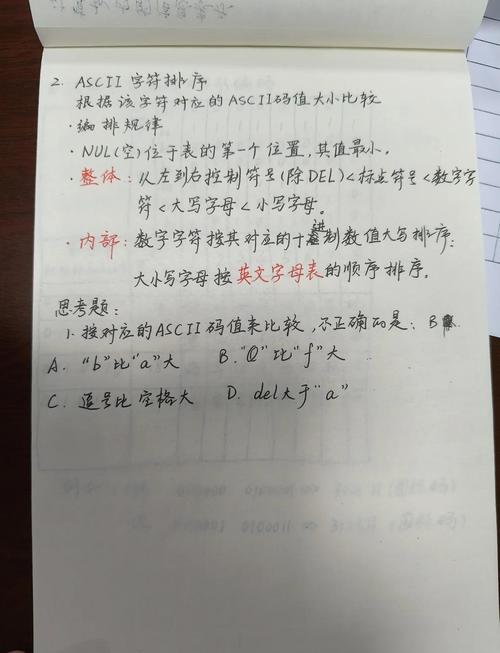 2. ASCII 字符排序
根据该字符对应的ASCII码值大小比较
·编排规律
·NUL(空)位于表的第一个位置,其值最小。
·整体:从左到右控制符号(除DEL)<标点符号<数字字
符<大写字母<小写字母。
·内部:数字字符按其对应的十进制数值大写排序;
大小写字母按英文字母表的顺序排序。
思考题:
1. 按对应的ASCII码值来比较,不正确的是:B
A. "b"比"a"大 B. "Q"比"f"大
C. 逗号比空格大 D. del大于"a"